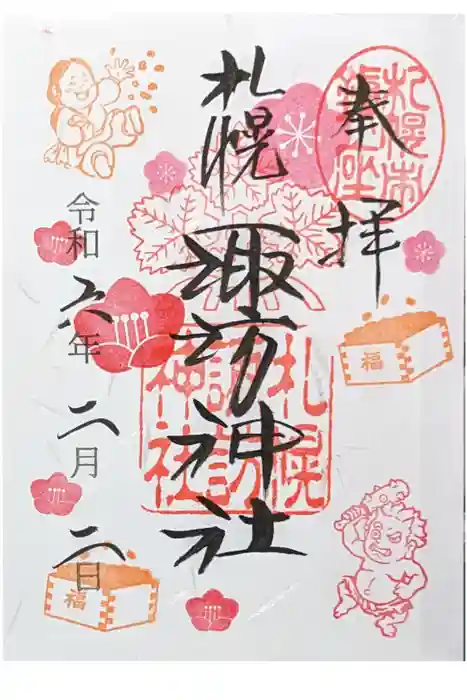 奉拝
札幌市
札幌諏訪神社
札幌
諏訪
神社
令和六年二月二日
福
福